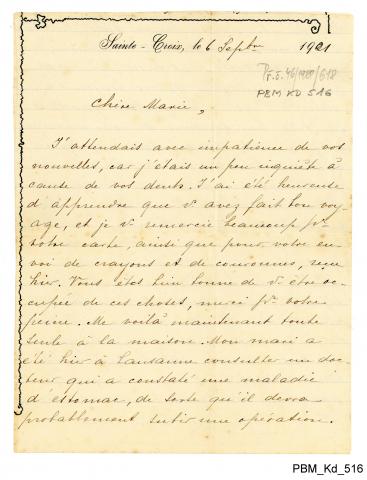 Sainte-Croix, le 6 Septbre 1921
PBM KD 516
Chère Marie,
J'attendais avec impatience de vos
nouvelles, car j'étais un peu inquiète à
cause de vos dents. J'ai été heureuse
d'apprendre que v. avez fait bon voy-
age, et je v. remercie beaucoup pr.
votre carte, ainsi que pour votre en-
voi de crayons et de couronnes, reçu
hier. Vous êtes bien bonne de v. être oc-
cupée de ces choses, merci pr. votre
peine. Me voilà maintenant toute
seule à la maison. Mon mari a
été hier à Lausanne consulter un doc-
teur qui a constaté une maladie
d'estomac, de sorte qu'il devra
probablement subir une opération.
PBM_Kd_516